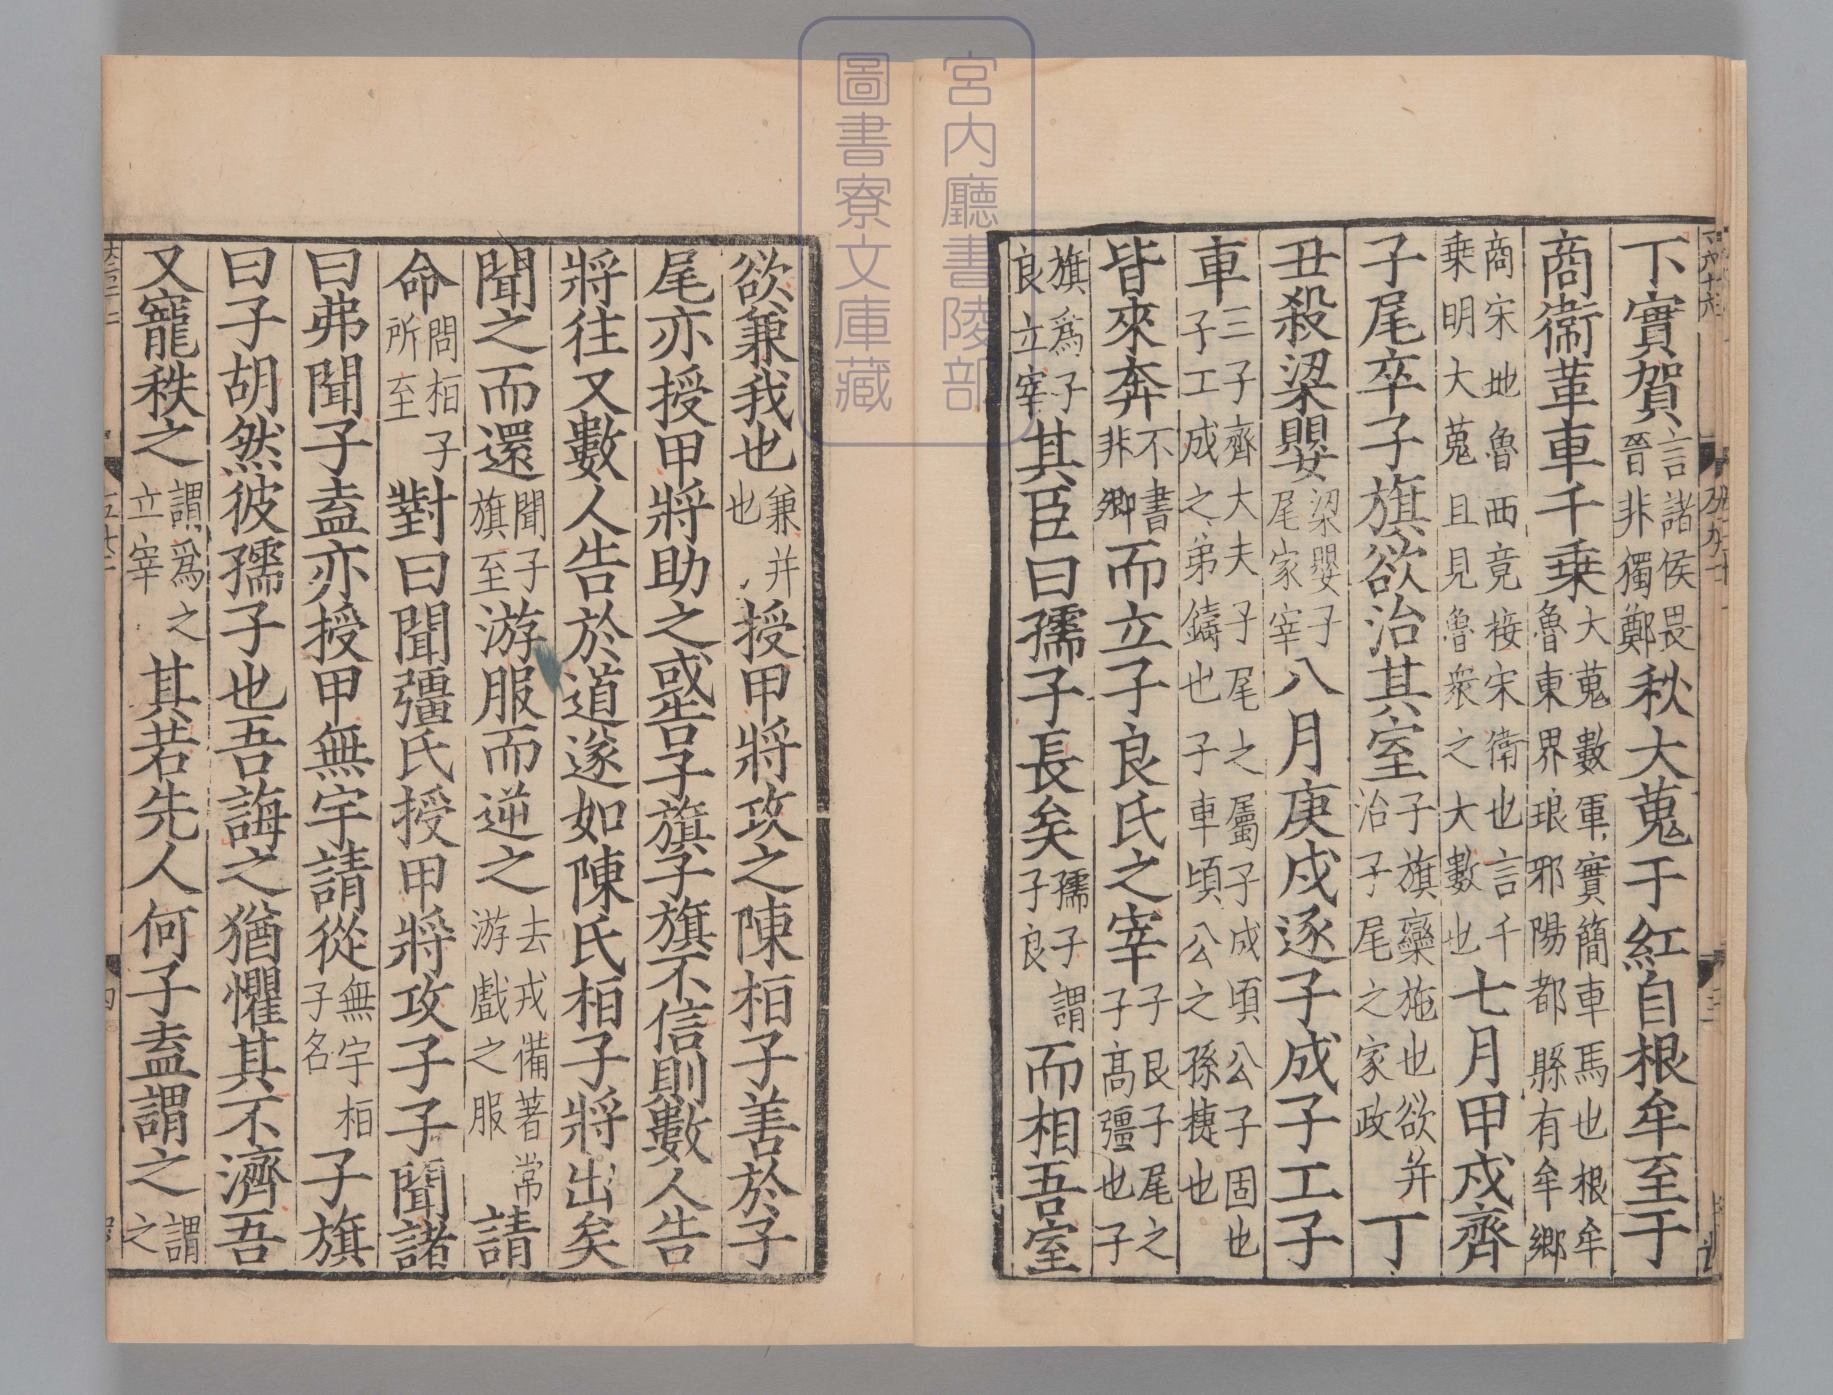 下實賀言諸侯畏晉非獨鄭秋大蒐于紅自根牟至于
商衞革車千乗大蒐數軍實簡車馬也根牟魯東界琅邪陽都縣有牟鄉
商宋地魯西竟接宋衛也言千乗明大蒐且見魯衆之大數也七月甲戍齊
子尾卒子旗欲治其室子旗欒施也欲并治子尾之家政丁
丑殺梁嬰梁嬰子尾家宰八月庚戍逐子成子工子
車三子齊大夫子尾之屬子成頃公子固也子工成之弟鑄也子車頃公之孫捷也
皆來奔不書非卿而立子良氏之宰子良子尾之子高彊也子
旗爲子良立宰其臣曰孺子長矣孺子謂子良而相吾室
欲兼我也兼并也授甲將攻之陳桓子善於子
尾亦授甲將助之或告子旗子旗不信則數人告
將往又數人告於道遂如陳氏桓子將出矣
聞之而還聞子旗至游服而逆之去戎備著常游戲之服請
命問桓子所至對曰聞彊氏授甲將攻子子聞諸
曰弗聞子盍亦授甲無宇請從無宇桓子名子旗
曰子胡然彼孺子也吾誨之猶懼其不濟吾
又寵秩之謂爲之立宰其若先人何子盍謂之謂之
宮内廳書陵部
圖書寮文庫藏